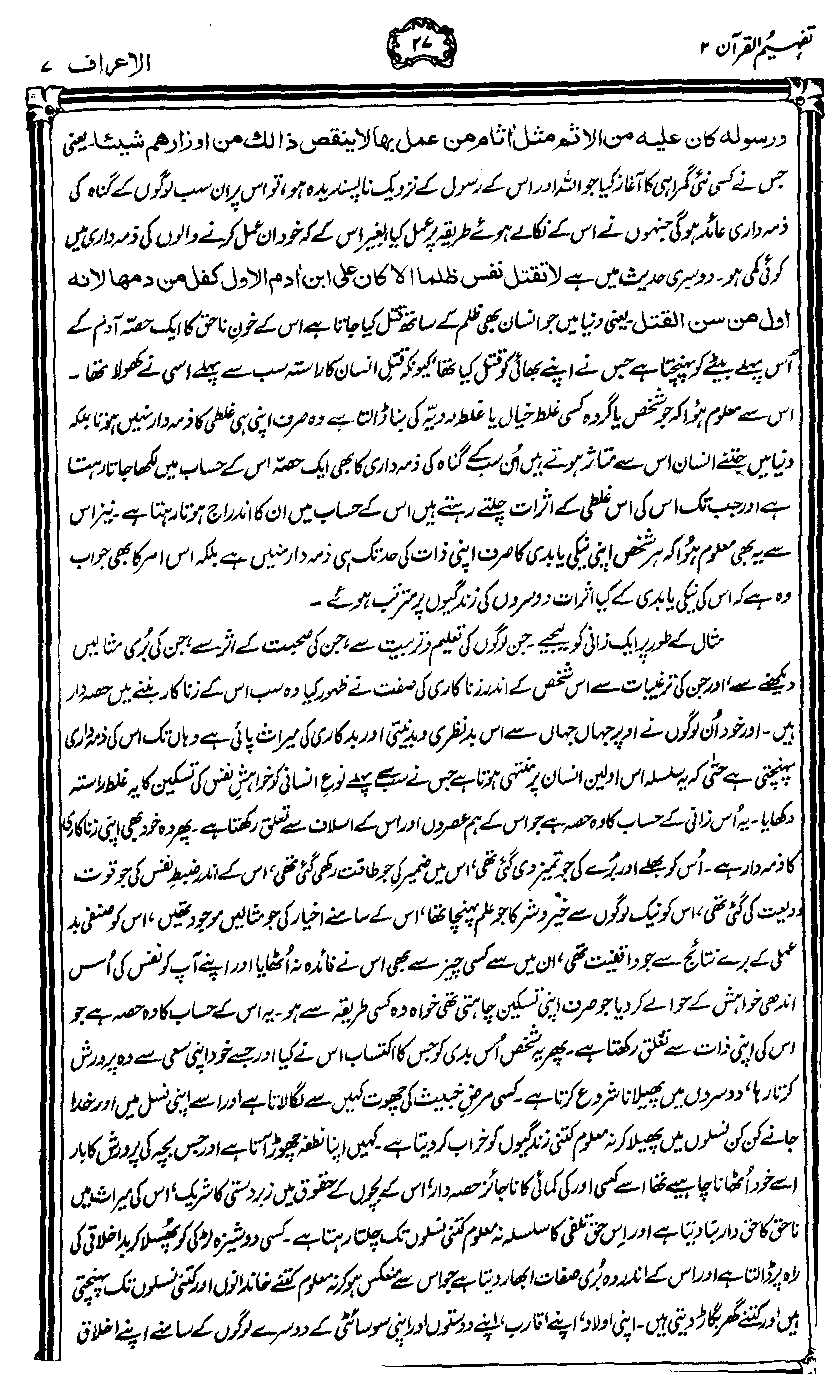 تفہیم القرآن ۲
۲۷
الاعراف ۷
ورسوله كان عليه من الاثم مثل اٰثام من عمل بها لا ينقص ذالك من اوزارهم شيئا۔ یعنی
جس نے کسی نئی گمراہی کا آغاز کیا جو اللہ اور اس کے رسول کے نزدیک ناپسندیدہ ہو، تو اس پر ان سب لوگوں کے گناہ کی
ذمہ داری عائد ہوگی جنہوں نے اس کے نکالے ہوئے طریقہ پر عمل کیا بغیر اس کے کہ خود ان عمل کرنے والوں کی ذمہ داری میں
کوئی کمی ہو۔ دوسری حدیث میں ہے لا تقتل نفس ظلما الا كان على ابن اٰدم الاول كفل من دمها لانه
اول من سن القتل۔ یعنی دنیا میں جو انسان بھی ظلم کے ساتھ قتل کیا جاتا ہے اس کے خونِ ناحق کا ایک حصہ آدم کے
اُس پہلے بیٹے کو پہنچتا ہے جس نے اپنے بھائی کو قتل کیا تھا، کیونکہ قتلِ انسان کا راستہ سب سے پہلے اسی نے کھولا تھا۔
اس سے معلوم ہوا کہ جو شخص یا گروہ کسی غلط خیال یا غلط رویّہ کی بنا ڈالتا ہے وہ صرف اپنی ہی غلطی کا ذمہ دار نہیں ہوتا بلکہ
دنیا میں جتنے انسان اس سے متاثر ہوتے ہیں اُن سب کے گناہ کی ذمہ داری کا بھی ایک حصہ اس کے حساب میں لکھا جاتا رہتا
ہے اور جب تک اس کی اس غلطی کے اثرات چلتے رہتے ہیں اس کے حساب میں ان کا اندراج ہوتا رہتا ہے۔ نیز اس
سے یہ بھی معلوم ہوا کہ ہر شخص اپنی نیکی یا بدی کا صرف اپنی ذات کی حد تک ہی ذمہ دار نہیں ہے بلکہ اس امر کا بھی جواب
دہ ہے کہ اس کی نیکی یا بدی کے کیا اثرات دوسروں کی زندگیوں پر مترتب ہوئے۔
مثال کے طور پر ایک زانی کو لیجیے۔ جن لوگوں کی تعلیم و تربیت سے، جن کی صحبت کے اثر سے، جن کی بُری مثالیں
دیکھنے سے، اور جن کی ترغیبات سے اس شخص کے اندر زناکاری کی صفت نے ظہور کیا وہ سب اس کے زناکار بننے میں حصہ دار
ہیں۔ اور خود اُن لوگوں نے اوپر جہاں جہاں سے اس بدنظری و بدنیتی اور بدکاری کی میراث پائی ہے وہاں تک اس کی ذمہ داری
پہنچتی ہے حتیٰ کہ یہ سلسلہ اس اولین انسان پر منتہی ہوتا ہے جس نے سب سے پہلے نوعِ انسانی کو خواہشِ نفس کی تسکین کا یہ غلط راستہ
دکھایا۔ یہ اُس زانی کے حساب کا وہ حصہ ہے جو اس کے ہم عصروں اور اس کے اسلاف سے تعلق رکھتا ہے۔ پھر وہ خود بھی اپنی زناکاری
کا ذمہ دار ہے۔ اُس کو بھلے اور بُرے کی جو تمیز دی گئی تھی، اس میں ضمیر کی جو طاقت رکھی گئی تھی، اس کے اندر ضبطِ نفس کی جو قوت
ودیعت کی گئی تھی، اس کو نیک لوگوں سے خیر و شر کا جو علم پہنچا تھا، اس کے سامنے اخیار کی جو مثالیں موجود تھیں، اس کو صنفی بد
عملی کے برے نتائج سے جو واقفیت تھی، ان میں سے کسی چیز سے بھی اس نے فائدہ نہ اُٹھایا اور اپنے آپ کو نفس کی اُس
اندھی خواہش کے حوالے کر دیا جو صرف اپنی تسکین چاہتی تھی خواہ وہ کسی طریقہ سے ہو۔ یہ اس کے حساب کا وہ حصہ ہے جو
اس کی اپنی ذات سے تعلق رکھتا ہے۔ پھر یہ شخص اُس بدی کو جس کا اکتساب اس نے کیا اور جسے خود اپنی سعی سے وہ پرورش
کرتا رہا، دوسروں میں پھیلانا شروع کرتا ہے۔ کسی مرضِ خبیث کی چھوت کہیں سے لگا لاتا ہے اور اسے اپنی نسل میں اور خدا
جانے کن کن نسلوں میں پھیلا کر نہ معلوم کتنی زندگیوں کو خراب کر دیتا ہے۔ کہیں اپنا نطفہ چھوڑ آتا ہے اور جس بچہ کی پرورش کا بار
اسے خود اُٹھانا چاہیے تھا اسے کسی اور کی کمائی کا ناجائز حصہ دار، اس کے بچوں کے حقوق میں زبردستی کا شریک، اس کی میراث میں
ناحق کا حق دار بنا دیتا ہے اور اِس حق تلفی کا سلسلہ نہ معلوم کتنی نسلوں تک چلتا رہتا ہے۔ کسی دوشیزہ لڑکی کو پھُسلا کر بداخلاقی کی
راہ پر ڈالتا ہے اور اس کے اندر وہ بُری صفات ابھار دیتا ہے جو اس سے منعکس ہو کر نہ معلوم کتنے خاندانوں اور کتنی نسلوں تک پہنچتی
ہیں اور کتنے گھر بگاڑ دیتی ہیں۔ اپنی اولاد، اپنے اقارب، اپنے دوستوں اور اپنی سوسائٹی کے دوسرے لوگوں کے سامنے اپنے اخلاق